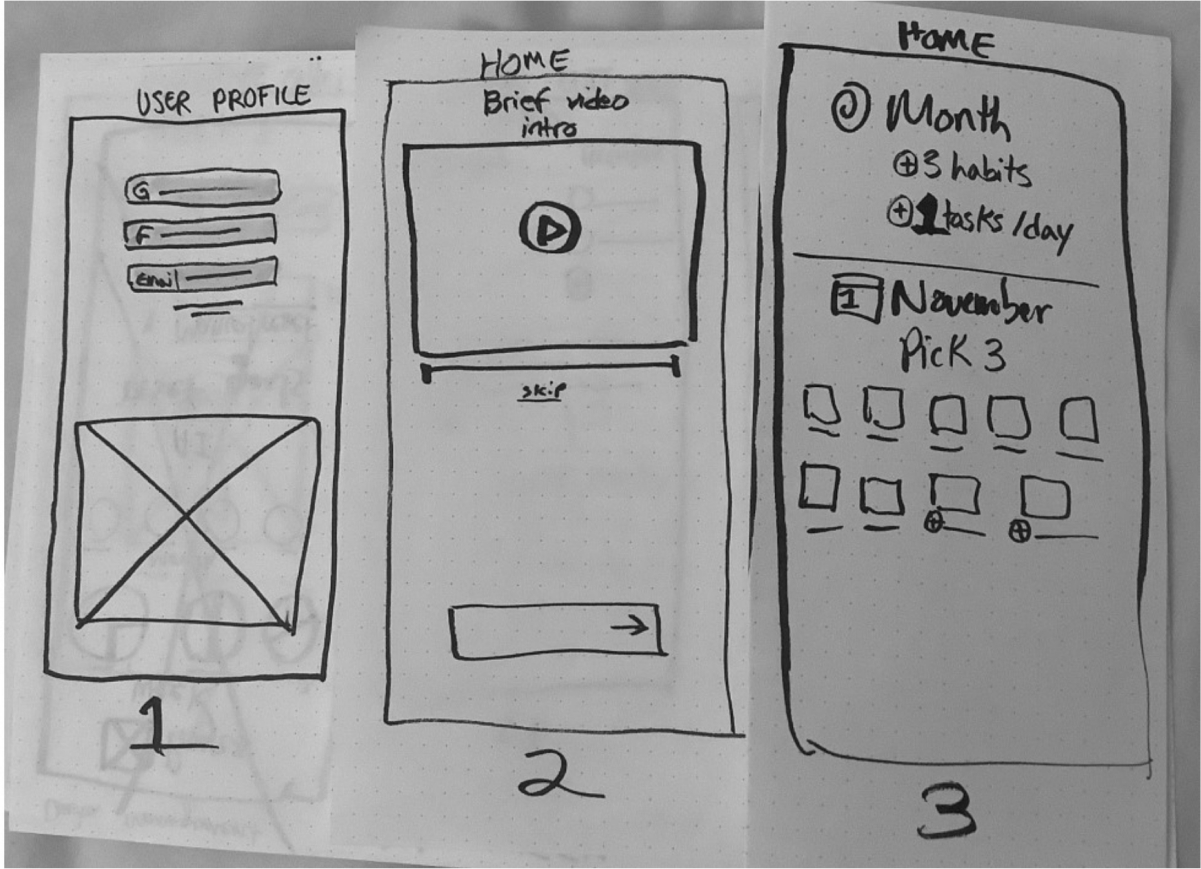 USER PROFILE
G
F
Email
1
HOME
Brief video
intro
skip
2
HOME
Month
3 habits
1 tasks/day
1 November
Pick 3
3